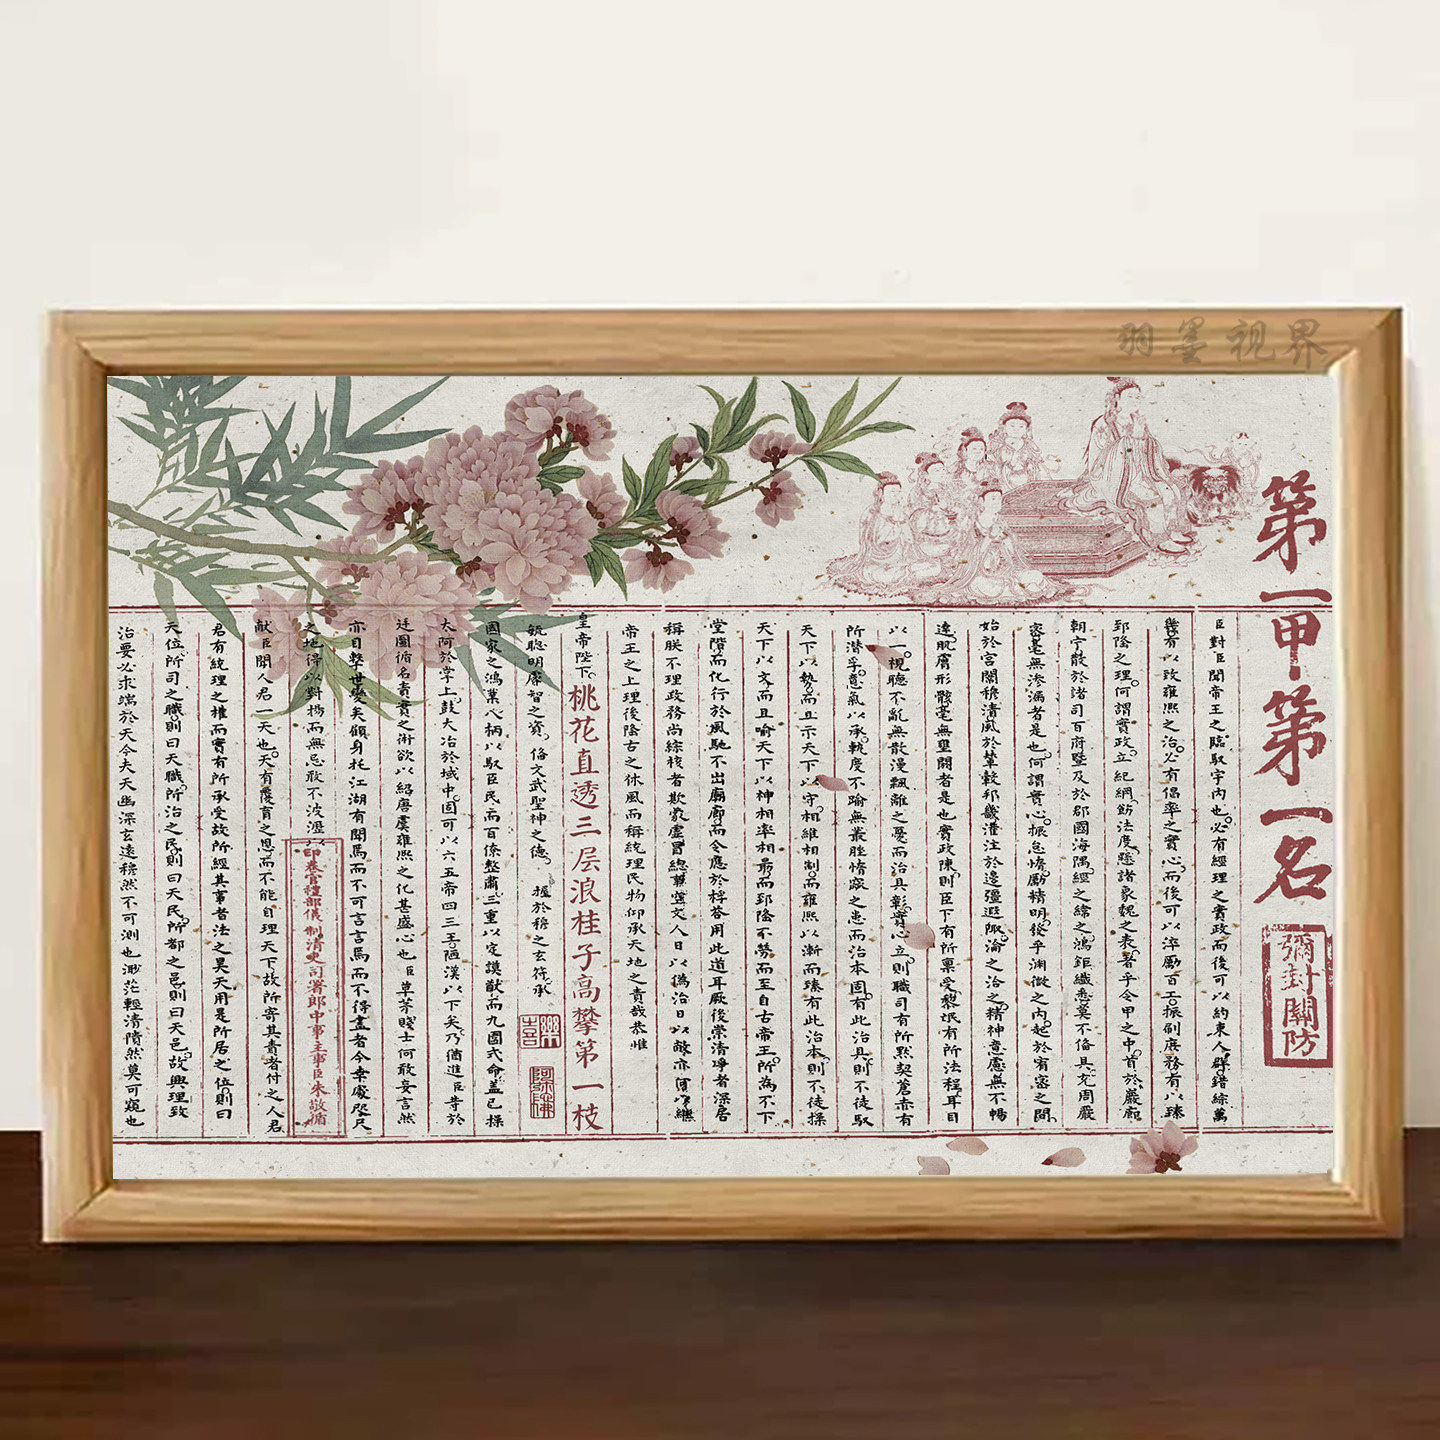 羽墨视界
第一甲第一名
彌封關防
臣對臣聞帝王之臨馭宇内也必有經理之實政而後可以約束人群錯綜萬
幾有以致雍熙之治必有倡率之實心而後可以淬勵百工振刷庶務有以臻
郅隆之理何謂實政立紀綱飭法度懸諸象魏之表著乎令甲之中首於巖廊
朝宁散於諸司百府暨及於郡國海隅經之緯之鴻鉅纖悉莫不備具充周嚴
密毫無滲漏者是也何謂實心振怠惰勵精明發乎淵微之内起於宥密之間
始於宮闈穆清風於輦轂邦畿灌注於邊疆遐陬淪之洽之精神意慮無不暢
達肌膚形骸毫無壅閼者是也實政陳則臣下有所稟受黎氓有所法程耳目
以一視聽不亂無散漫飄離之憂而治具彰實心立則職司有所默契蒼赤有
所潛孚意氣以承軌度不踰無叢脞惰窳之患而治本固有此治具則不徒馭
天下以勢而且示天下以守相維相制而雍熙以漸而臻有此治本則不徒操
天下以文而且喻天下以神相率相勖而郅隆不勞而至自古帝王所為不下
堂階而化行於風馳不出廟廊而令應於桴荅用此道耳厥後崇清淨者深居
稱朕不理政務尚綜核者欺蒙虛冒總事空文人日以偽治日以敝亦何以繼
帝王之上理後隆古之休風而稱統理民物仰承天地之責哉恭惟
皇帝陛下
桃花直透三层浪桂子高攀第一枝
毓聰明睿智之資備文武聖神之德握於穆之玄符承
國家之鴻業八柄以馭臣民而百僚整肅三重以定謨猷而九圍式命蓋已操
太阿於掌上鼓大冶於域中固可以六五帝四三王陋漢以下矣乃猶進臣等於
廷圖循名責實之術欲以紹唐虞雍熙之化甚盛心也臣草茅賤士何敢妄言然
亦目擊世變矣顧身托江湖有聞焉而不可言言焉而不得盡者今幸處咫尺
之地得以對揚而無忌敢不披瀝以
印卷官禮部儀制清吏司署郎中事主事臣朱敬循
献臣聞人君一天也天有覆育之恩而不能自理天下故所寄其責者付之人君
君有統理之權而實有所承受故所經其事者法之昊天用是所居之位則曰
天位所司之職則曰天職所治之民則曰天民所都之邑則曰天邑故興理致
治要必求端於天今夫天幽深玄遠穆然不可測也渺茫輕清隤然莫可窺也